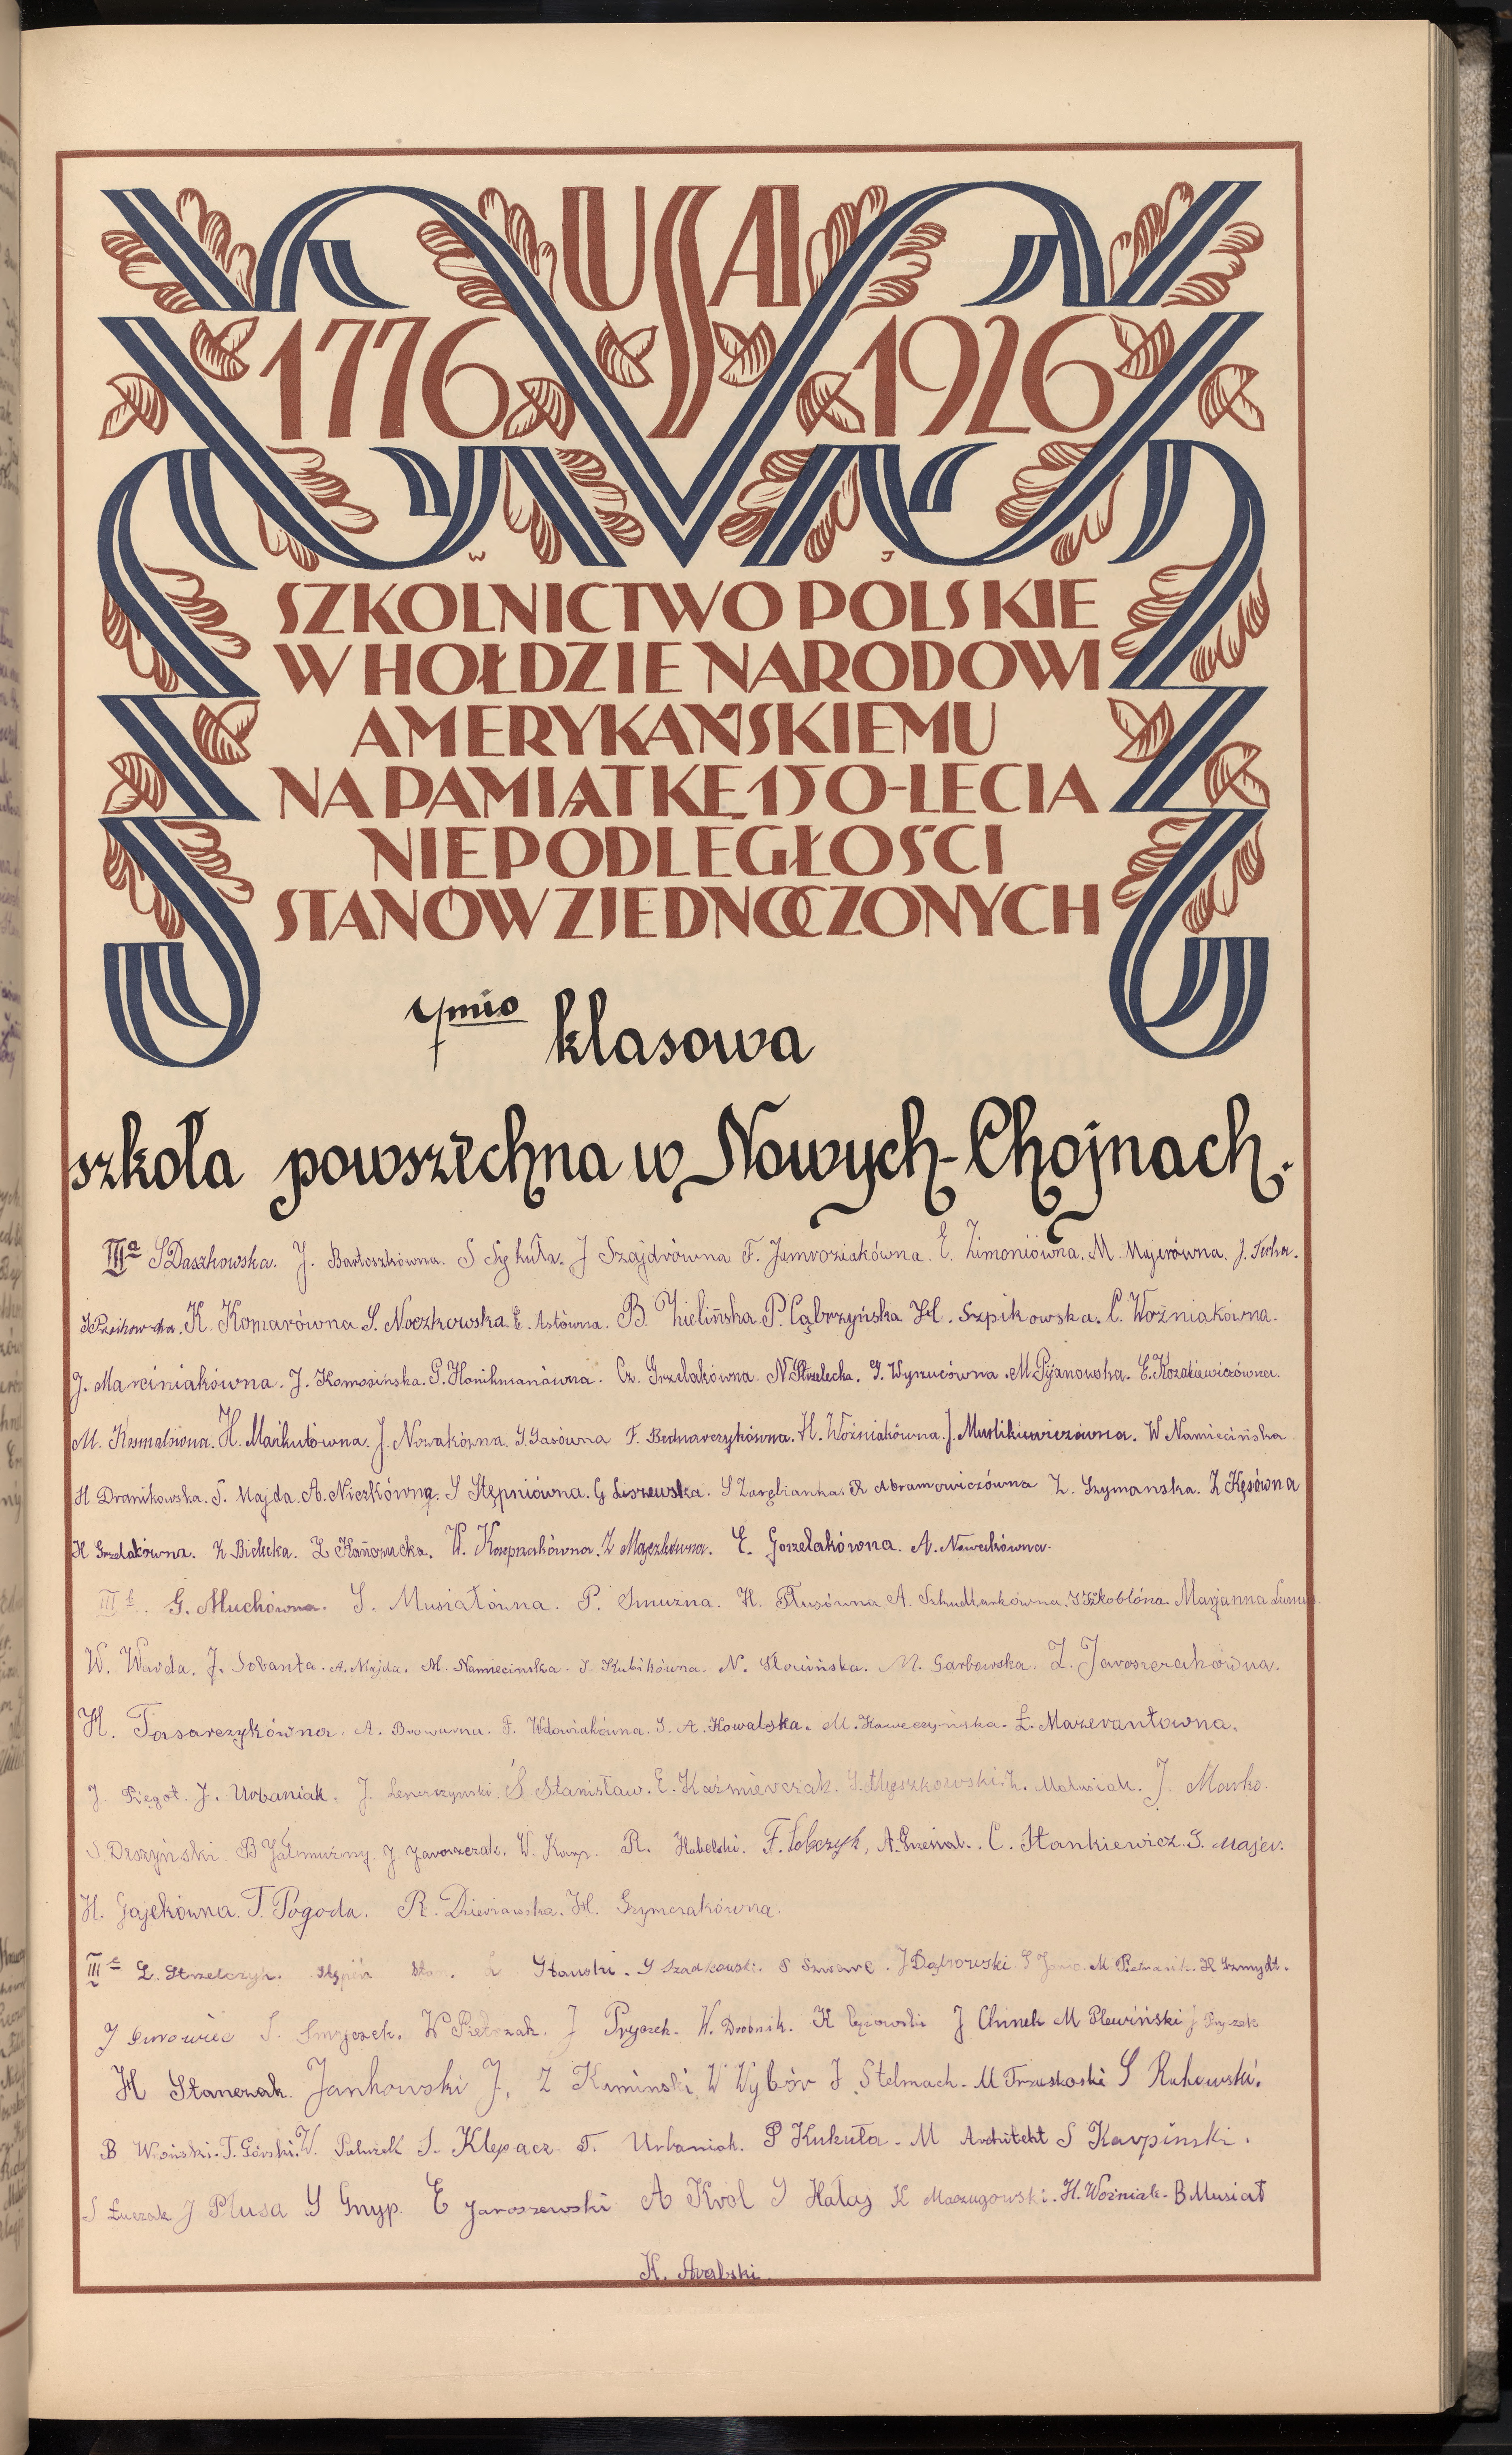 USA
1776 1926
W J
SZKOLNICTWO POLSKIE
W HOŁDZIE NARODOWI
AMERYKAŃSKIEMU
NA PAMIĄTKĘ 150-LECIA
NIEPODLEGŁOŚCI
STANÓW ZJEDNOCZONYCH
7mio klasowa
szkoła powszechna w Nowych-Chojnach.
IIIa S Daszkowska. J. Bartoszkówna. S Sękuła. J Szajdrówna F. Jamroziakówna. E. Zimoniówna. M. Majerówna. J.
K. Komarówna S. Noczkowska. E. Astówna. B. Zielińska. P. Cąbrzyńska H. Szpikowska. C. Woźniakówna.
J. Marciniakówna. J. Komosińska. G. Honikmanówna. Cz. Grzelakówna. N. Strzelecka. G. Wyrzucówna. M. Pijanowska. E. Kozakiewiczówna.
M. H. Markutówna. J. Nowakówna. G. Gasówna F. Bednarczykówna. H. Woźniakówna. J. W Namiecińska
H Dranikowska. S. Majda. A. Nierkówna. S Stępniówna. G Liszewska. S Zarębianka. R Abramowiczówna Z. Szymanska. Z Kęsówna
H Grzelakówna. K Bielicka. Z W. Z Majezkówna. E. Gorzelakówna. A. Nowakówna.
III b. G. Muchówna. S. Musiałówna. P. Smużna. H. Płusówna A. Marjanna
W. Wawda. J. Sobanta. A. Majda. M. Namiecinska. S. Kubikówna. N. Słowińska. M. Garbowska. Z. Jaroszczakówna.
H. Tasarczykówna. A. Browarna. F. Wdowiakówna. S. A. Kowalska. M. Kaweczyńska. Ł. Mazerantowna.
J. Piegot. J. Urbaniak. J. Lenerczynski. S Stanisław. E. Kaźmierczak. S. Myszkorowski. Matusiak. J. Marko.
S. Deszyński. B Jałmużny. J. Jaroszczak. W. Karp. R. Habelski. F. Sobczyk, A. C. Stankiewicz. S. Majer.
H. Gajekówna. T. Pogoda. R. Dzieviawska. H. Szymczakówna.
III c L. Strzelczyk. Stępień S Szadkowski. S J Dąbrowski. M H Szmydt.
J Surowiec S. W Pietrzak. J Pryczek. W. Drobnik. K J Chinek M Plewiński J
H Stanczak. Jankowski J. Z Kaminski W Wybór J Stelmach. M Trzaskoski S Rakowski.
B T. Górski. W. S. Klepacz. T. Urbaniak. P Kukuła. M Architekt S Karpinski.
S Łuczak J Plusa S Gnyp. E Jaroszewski A Król S Hałaj K Maczugowski. H. Woźniak. B Musiał
K.